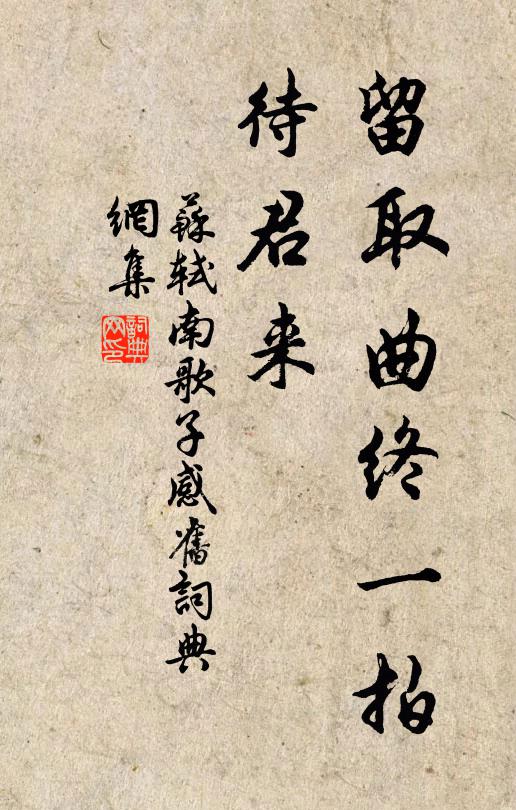 留取曲终一拍
待君来
蘇軾南歌子感舊詞典
網集
詞典
网印